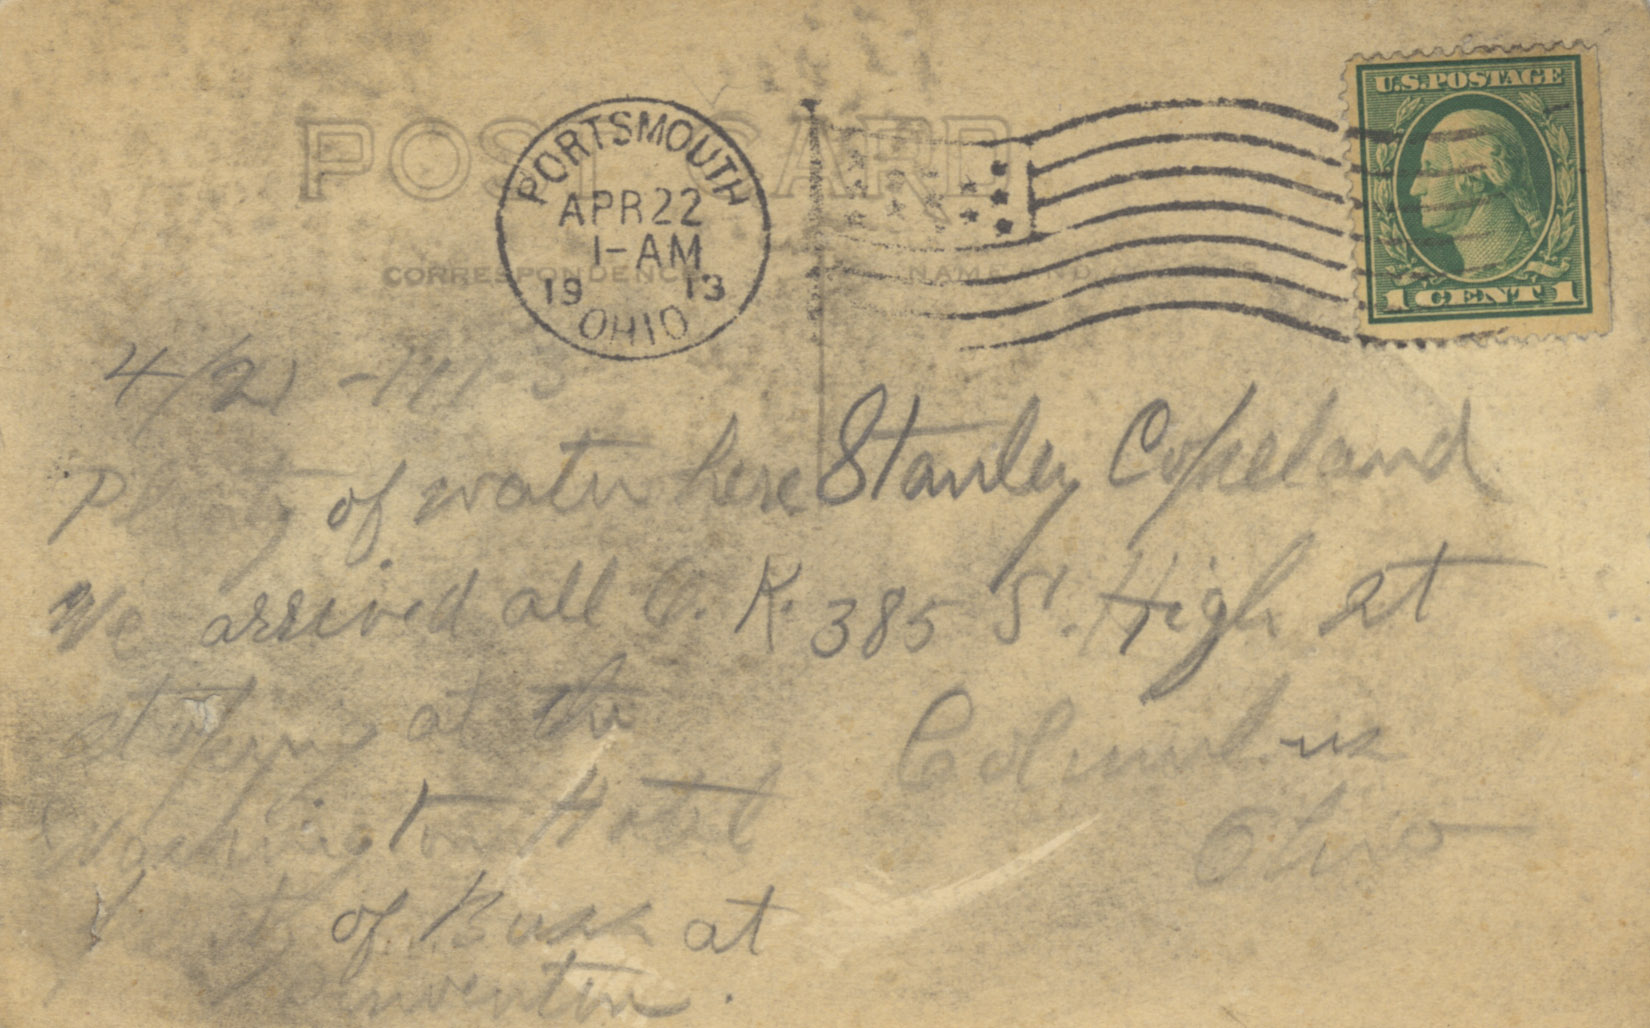 POST CARD
PORTSMOUTH
APR 22
1-AM
19 13
OHIO
U.S. POSTAGE
1 CENT 1
CORRESPONDENCE
NAME AND
4/21
Plenty of water here
We arrived all O. K.
at the
Washington Hotel
Plenty of at
Stanley Copeland
385 S. High st
Columbus
Ohio